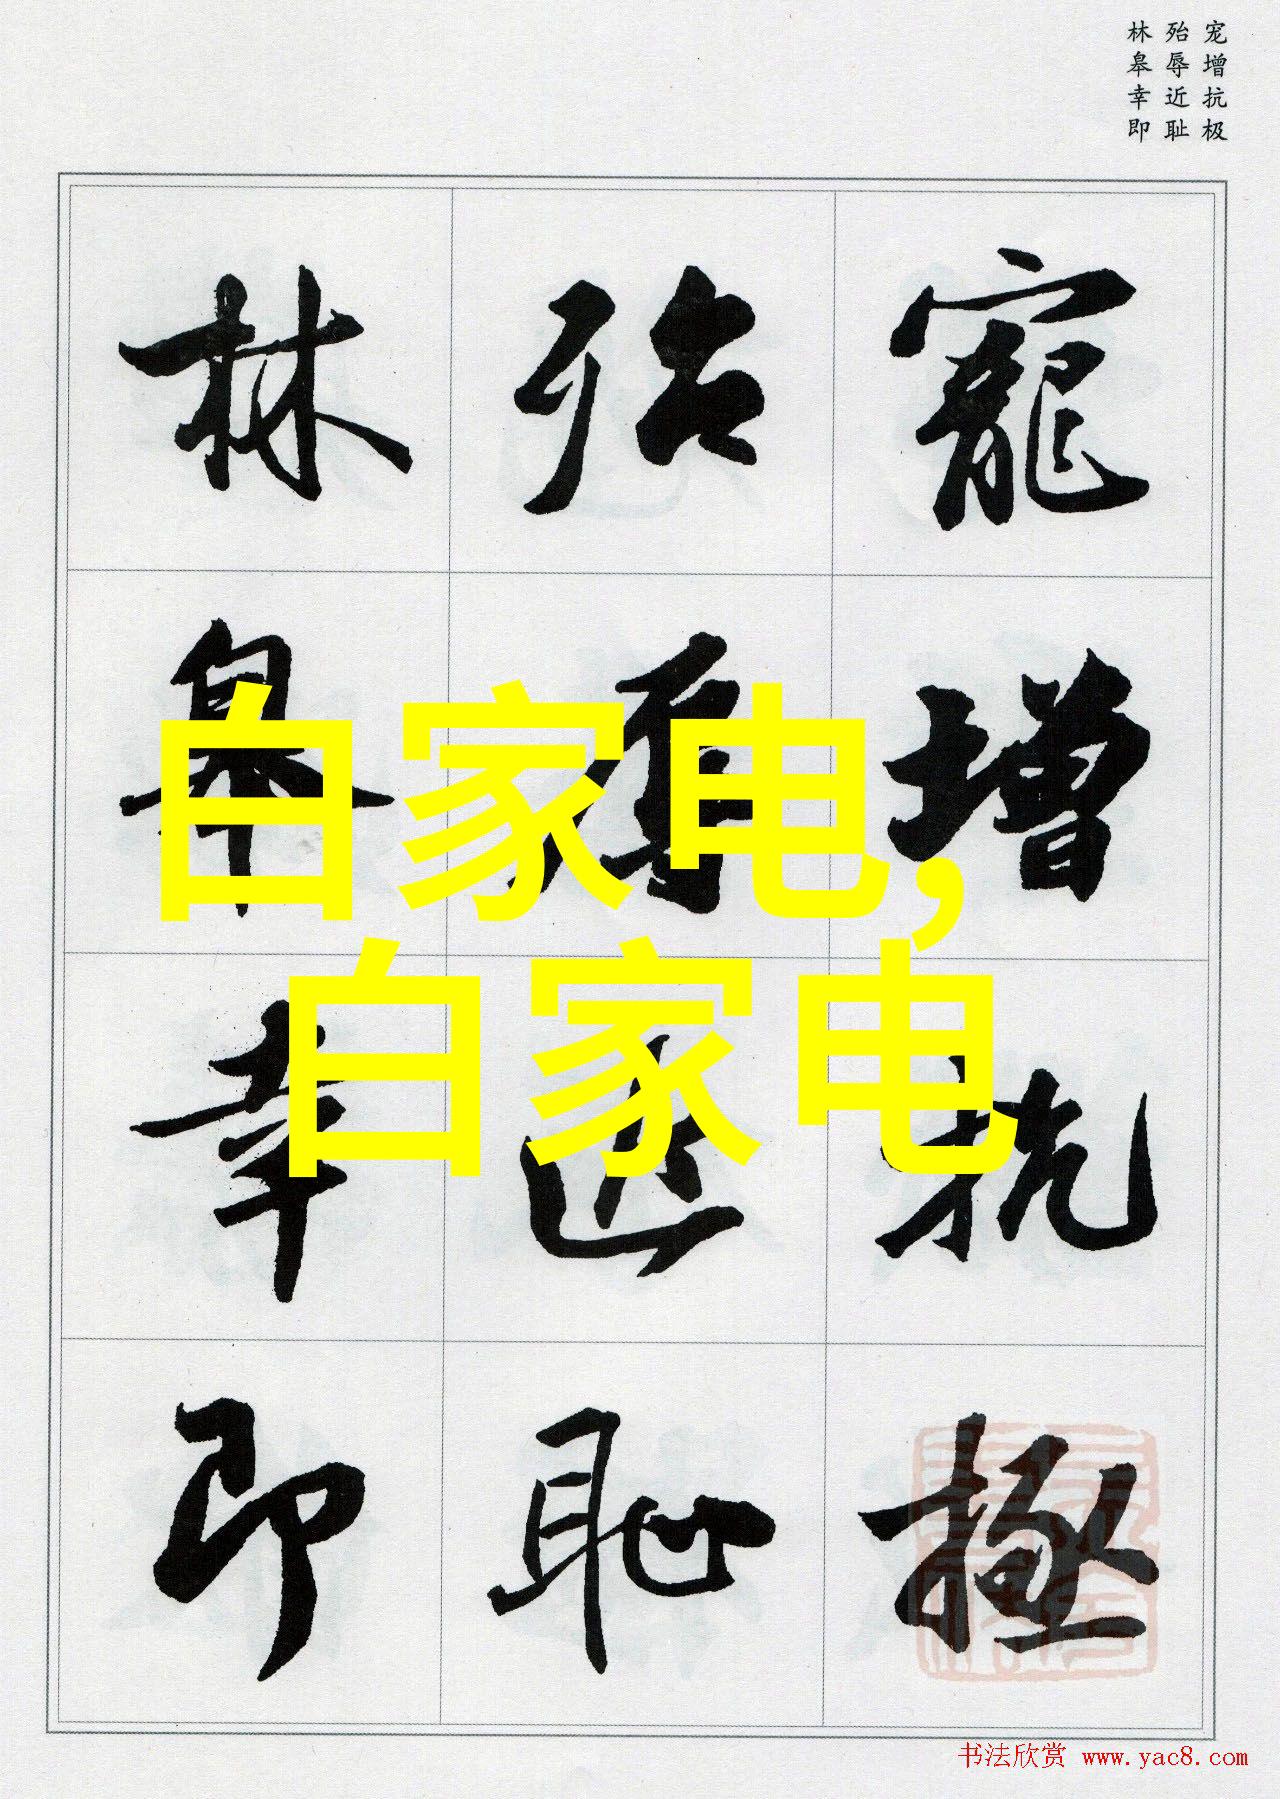 宠增抗极
殆辱近耻
林皋幸即
寵增抗極
殆辱近恥
林皋幸即
白家电,
白家电
书法欣赏 www.yac8.com